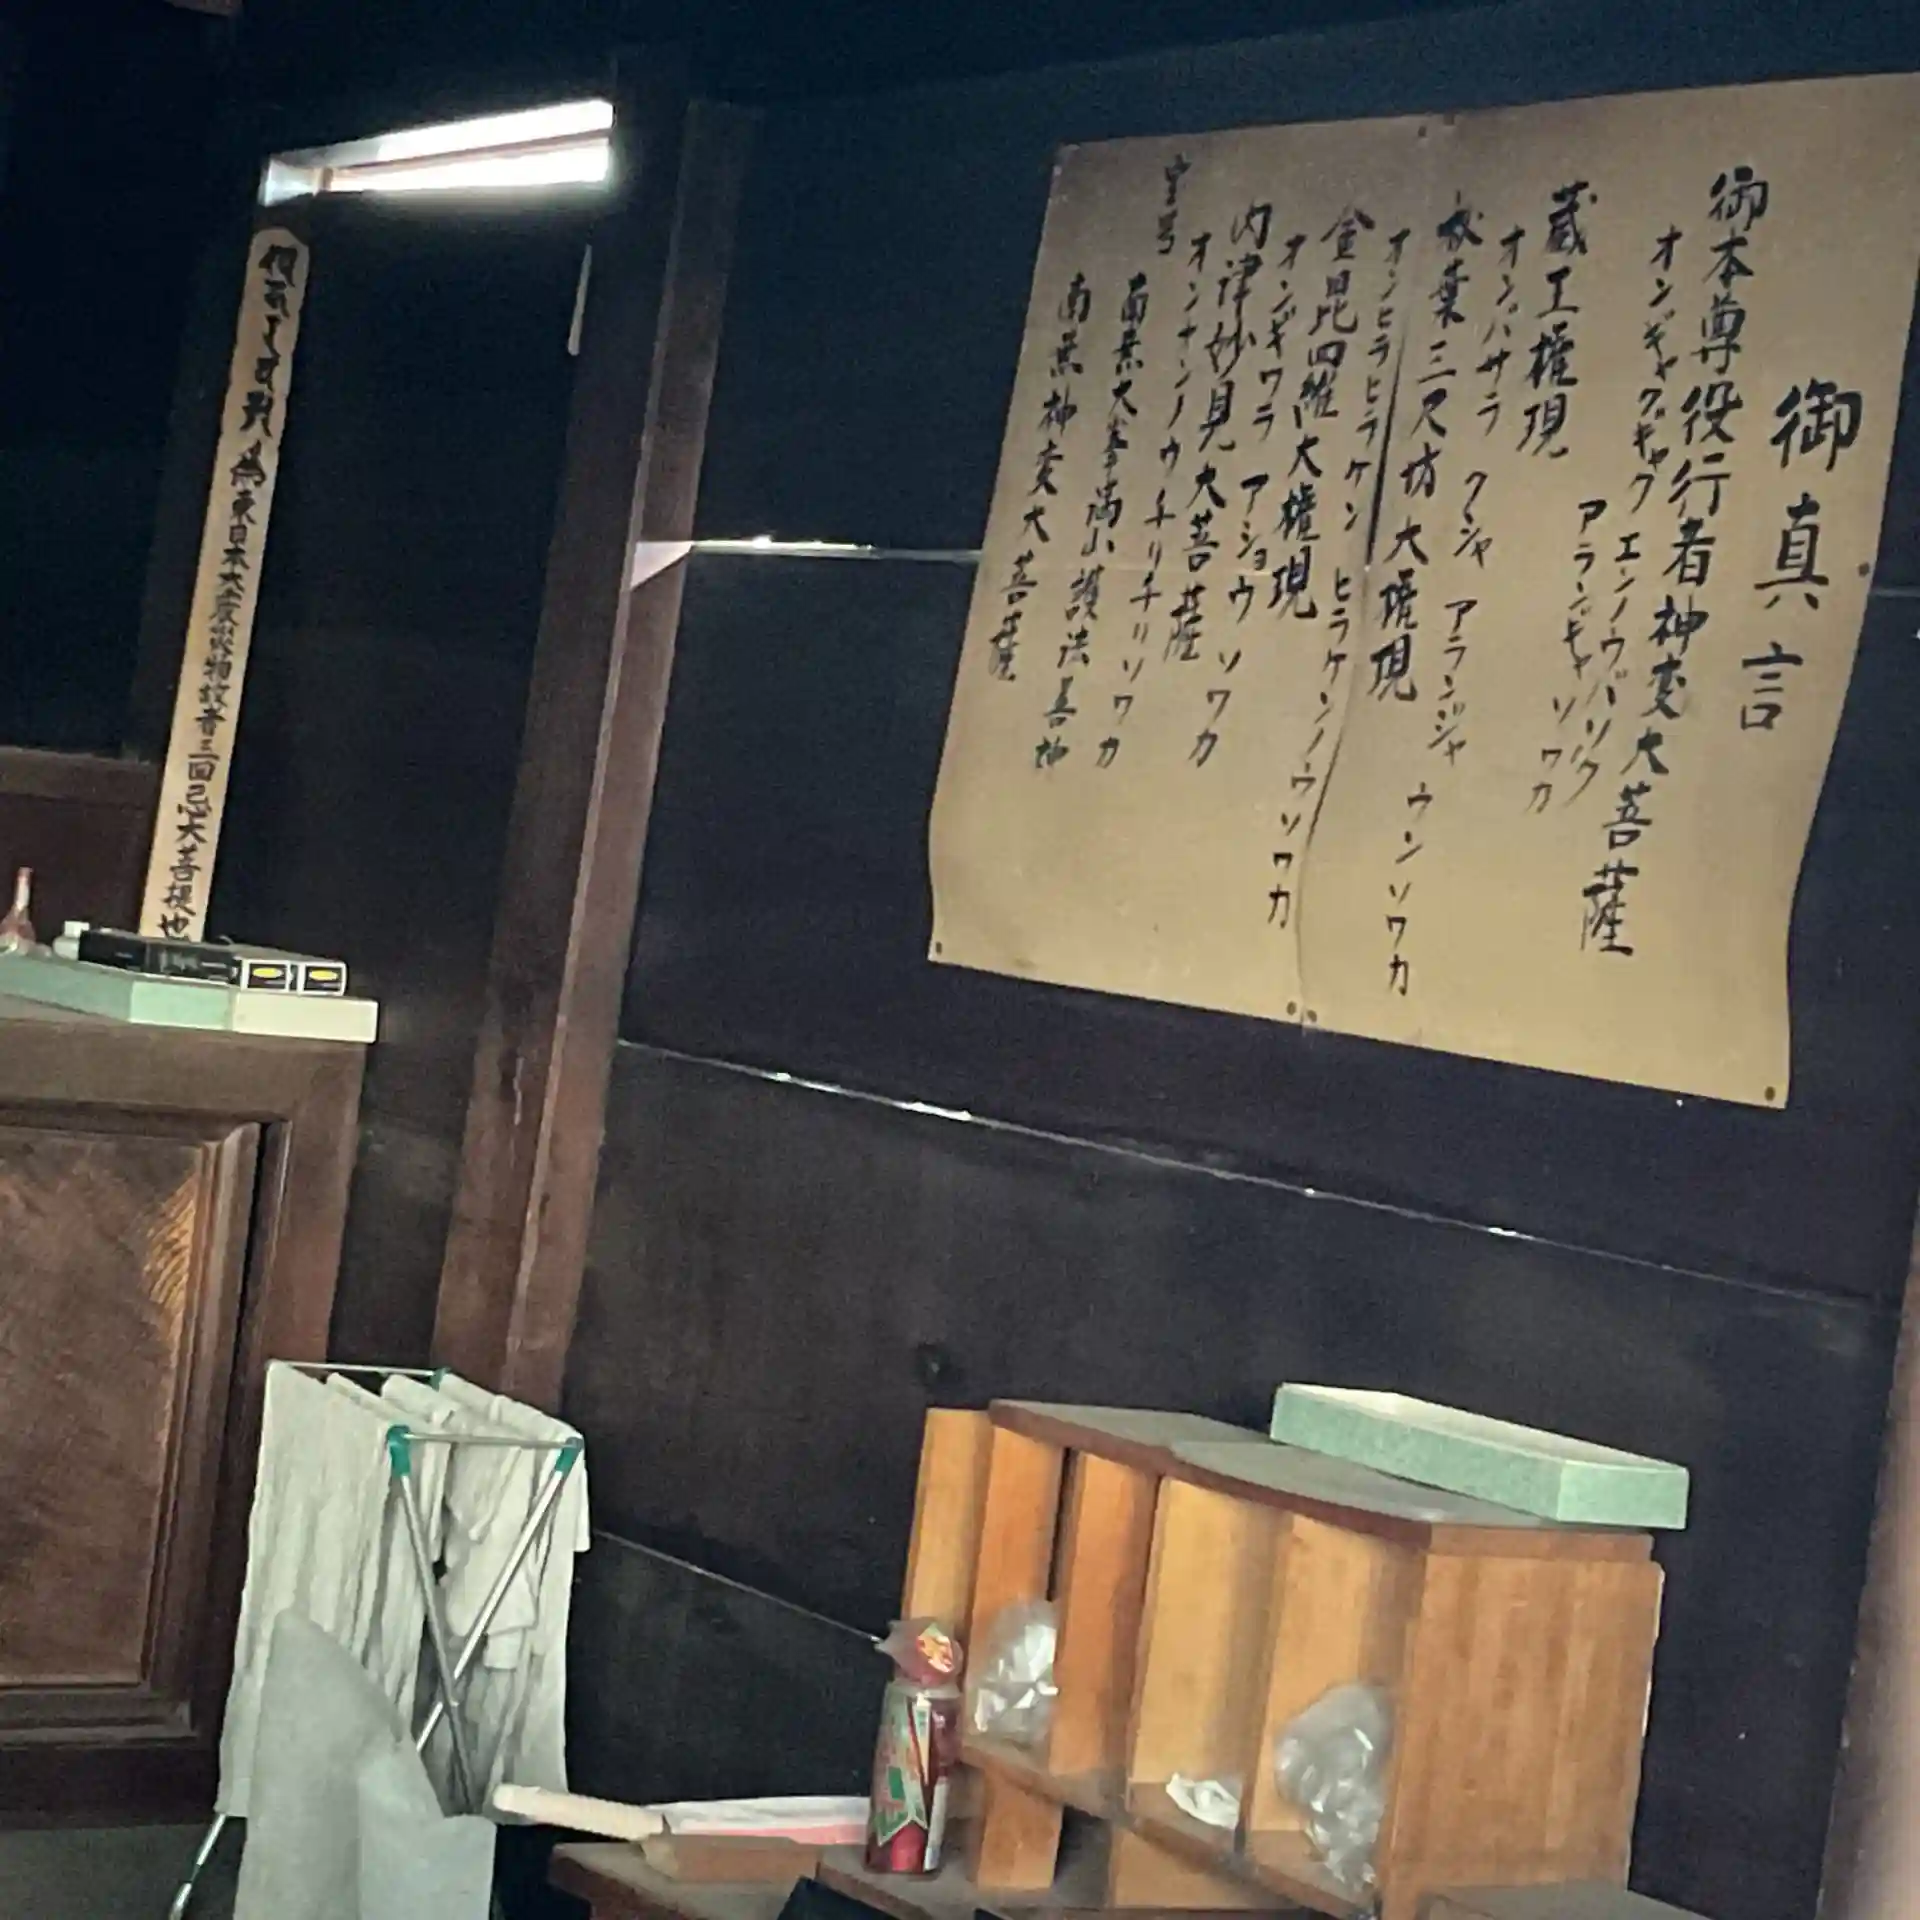 御真言
御本尊役行者神変大菩薩
オンギャクギャク エンノウバソク
アランキャ ソワカ
蔵王権現
オンバサラ クシャ アランジャ ウン ソワカ
秋葉三尺坊大権現
オンヒラヒラケン ヒラケンノウ ソワカ
金毘羅大権現
オンギワラ アショウ ソワカ
内津妙見大菩薩
オンナンノウ チリチリ ソワカ
宝号
南無大峯満山護法善神
南無神変大菩薩
為東日本大震災物故者三回忌大菩提也